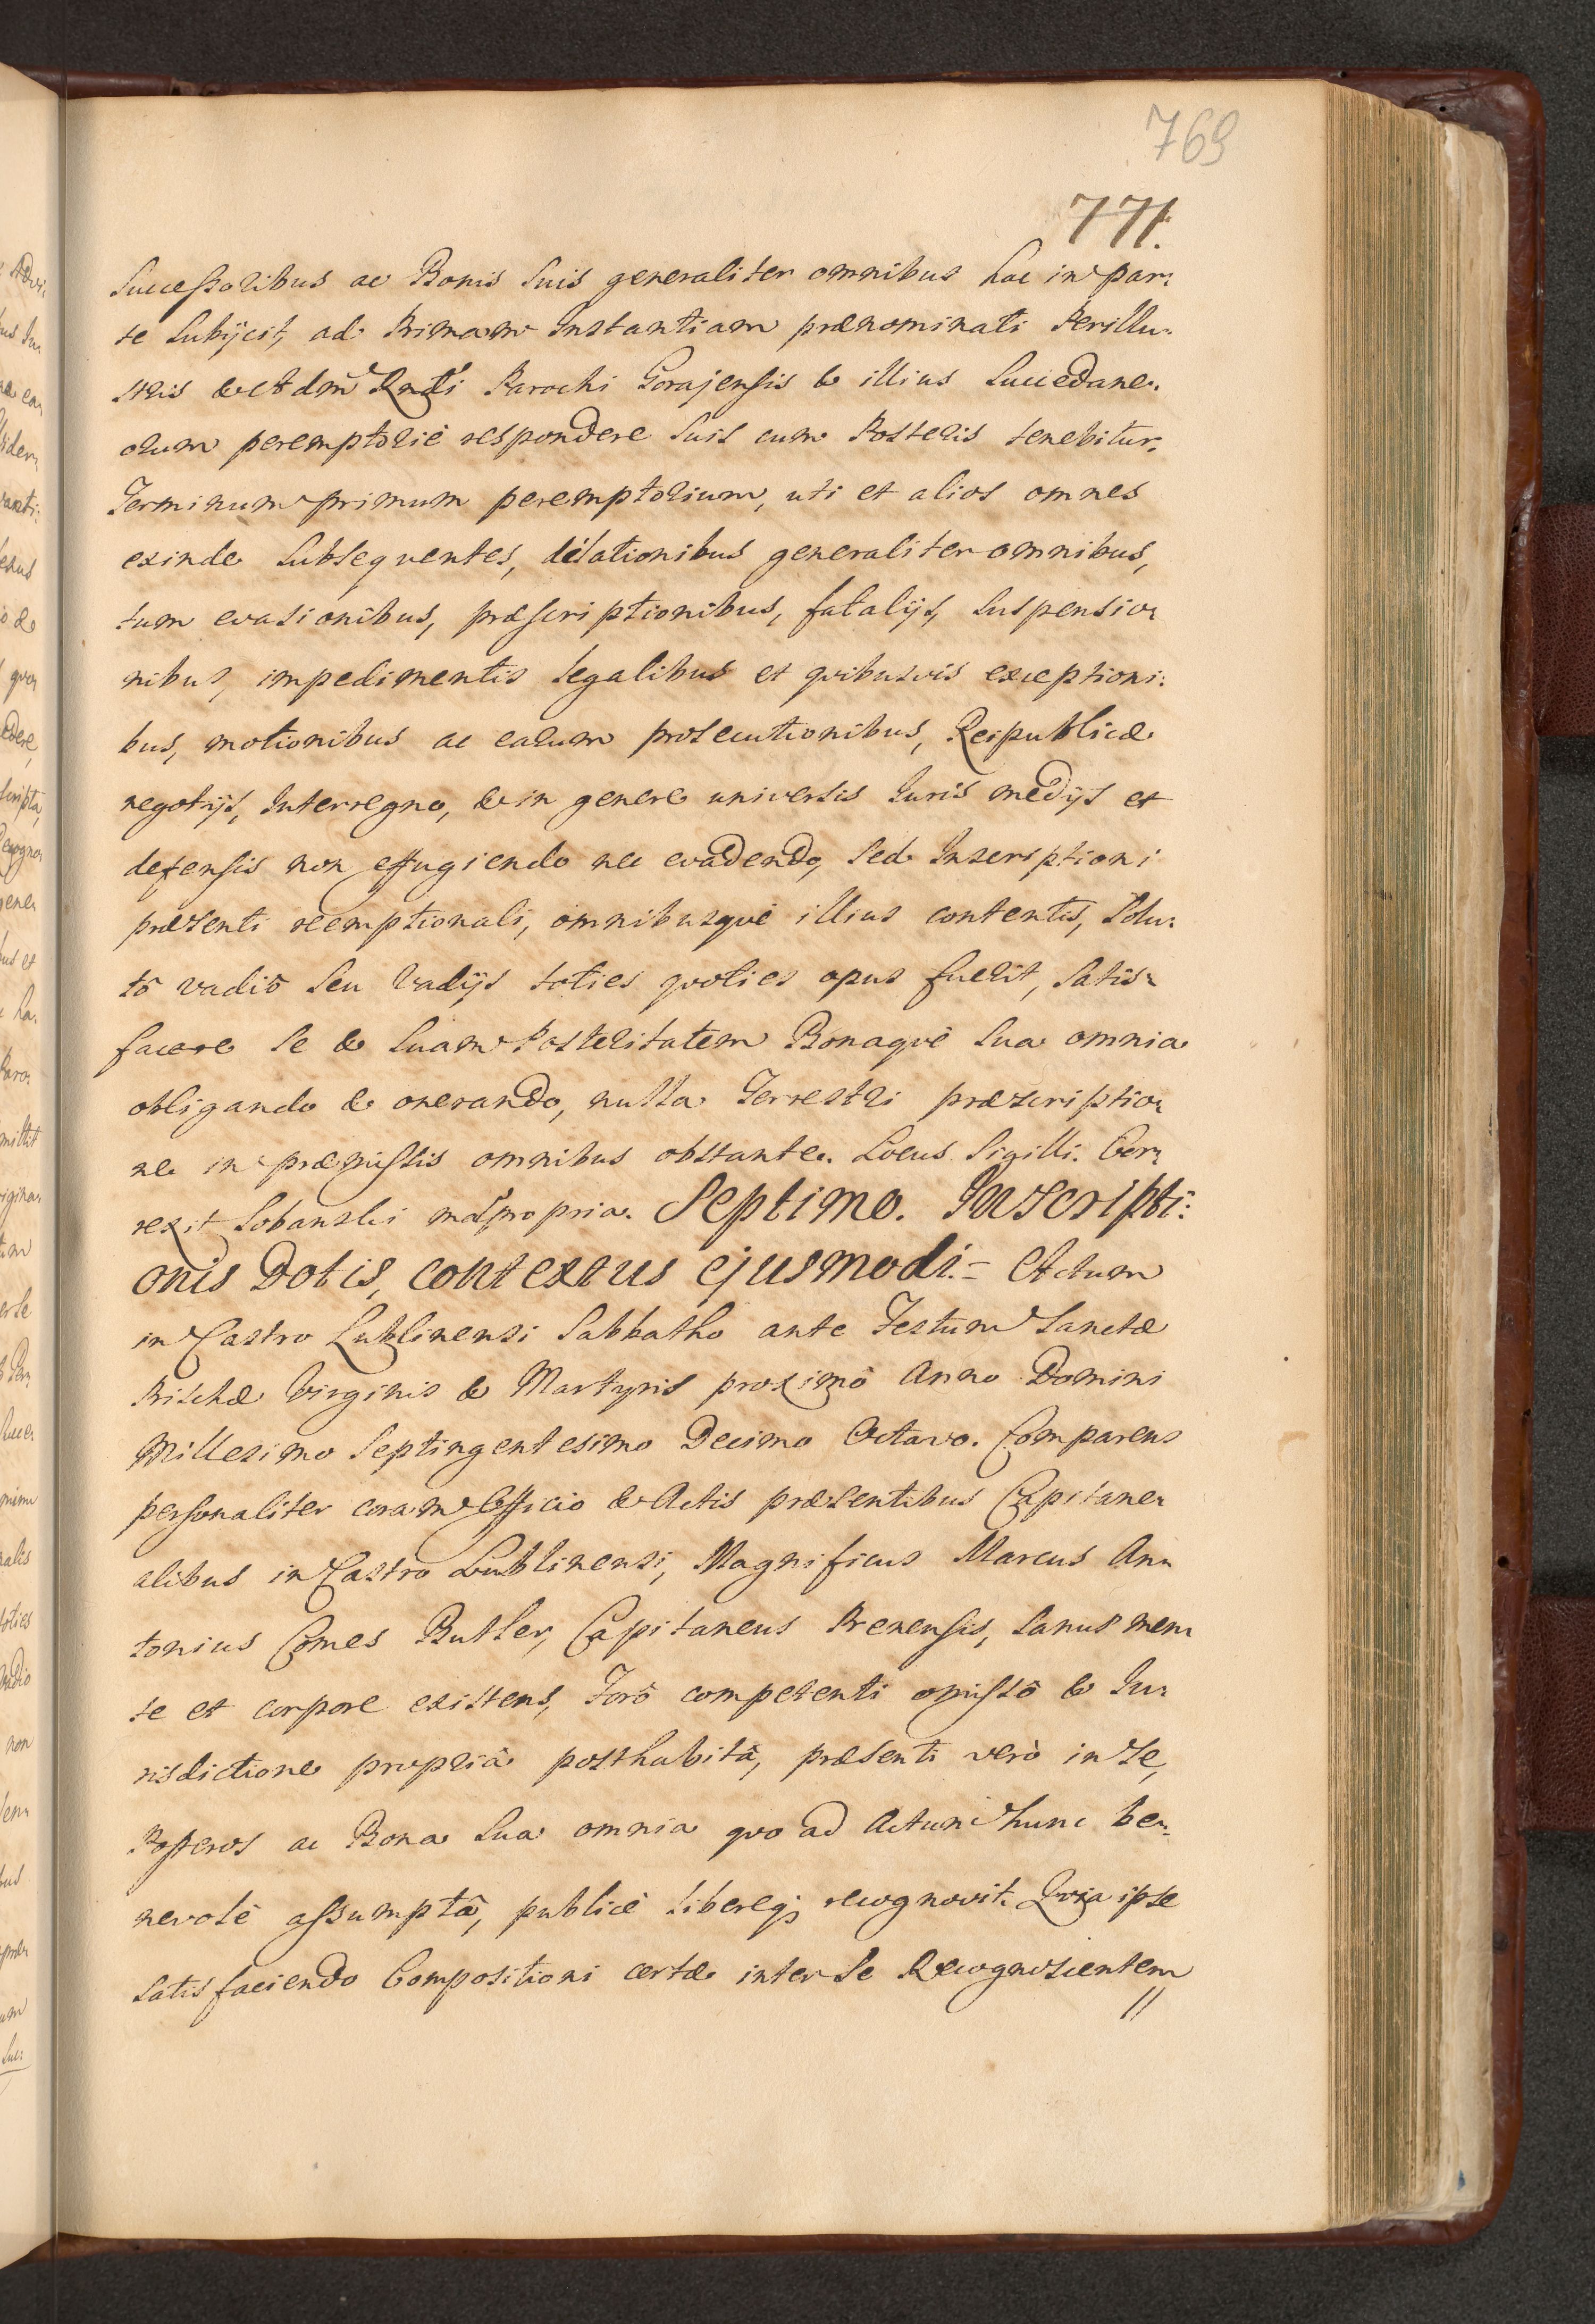 769
771.
Successoribus ac Bonis Suis generaliter omnibus hac in par:
te Subijcit, ad Primam Instantiam prænominati Perillu:
stris & Adm Rndi Parochi Gorajensis & illius Succedane:
orum peremptoriè respondere Suis cum Posteris tenebitur.
Terminum primum peremptorium, uti et alios omnes
exinde Subsequentes, dilationibus generaliter omnibus,
tum evasionibus, præscriptionibus, fatalijs, Suspensio:
nibus, impedimentis legalibus et quibusvis exceptioni:
bus, motionibus ac earum prosecutionibus, Reipublicæ
negotijs, Interregno, & in genere universis Juris medijs et
defensis non effugiendo nec evadendo, Sed Inscriptioni
præsenti reemptionali, omnibusquè illius contentis, Solu:
tô vadiô Seu Vadijs toties quoties opus fuerit, Satis:
facere Se & Suam Posteritatem Bonaquè Sua omnia
obligando & onerando, nulla Terrestri præscriptio:
ne in præmissis omnibus obstante. Locus Sigilli. Cor:
rexit Lobanski mãpropria. Septimo. Inscripti:
onis Dotis, contextus ejusmodi.= Actum
in Castro Lublinensi Sabbatho ante Festum Sanctæ
Prischæ Virginis & Martyris proximô Anno Domini
Millesimo Septingentesimo Decimo Octavo. Comparens
personaliter coram Officio & Actis præsentibus Capitane:
alibus in Castro Lublinensi, Magnificus Marcus An:
tonius Comes Butler, Capitaneus Prenensis, Sanus men:
te et corpore existens, Forô competenti omissô & Ju:
risdictione propriâ posthabitâ, præsenti verò in Se,
Posteros ac Bona Sua omnia quo ad Actum hunc be:
nevolè assumptâ, publicè liberèq; recognovit. Quia ipse
Satisfaciendo Compositioni certæ inter Se Recognoscentem
//